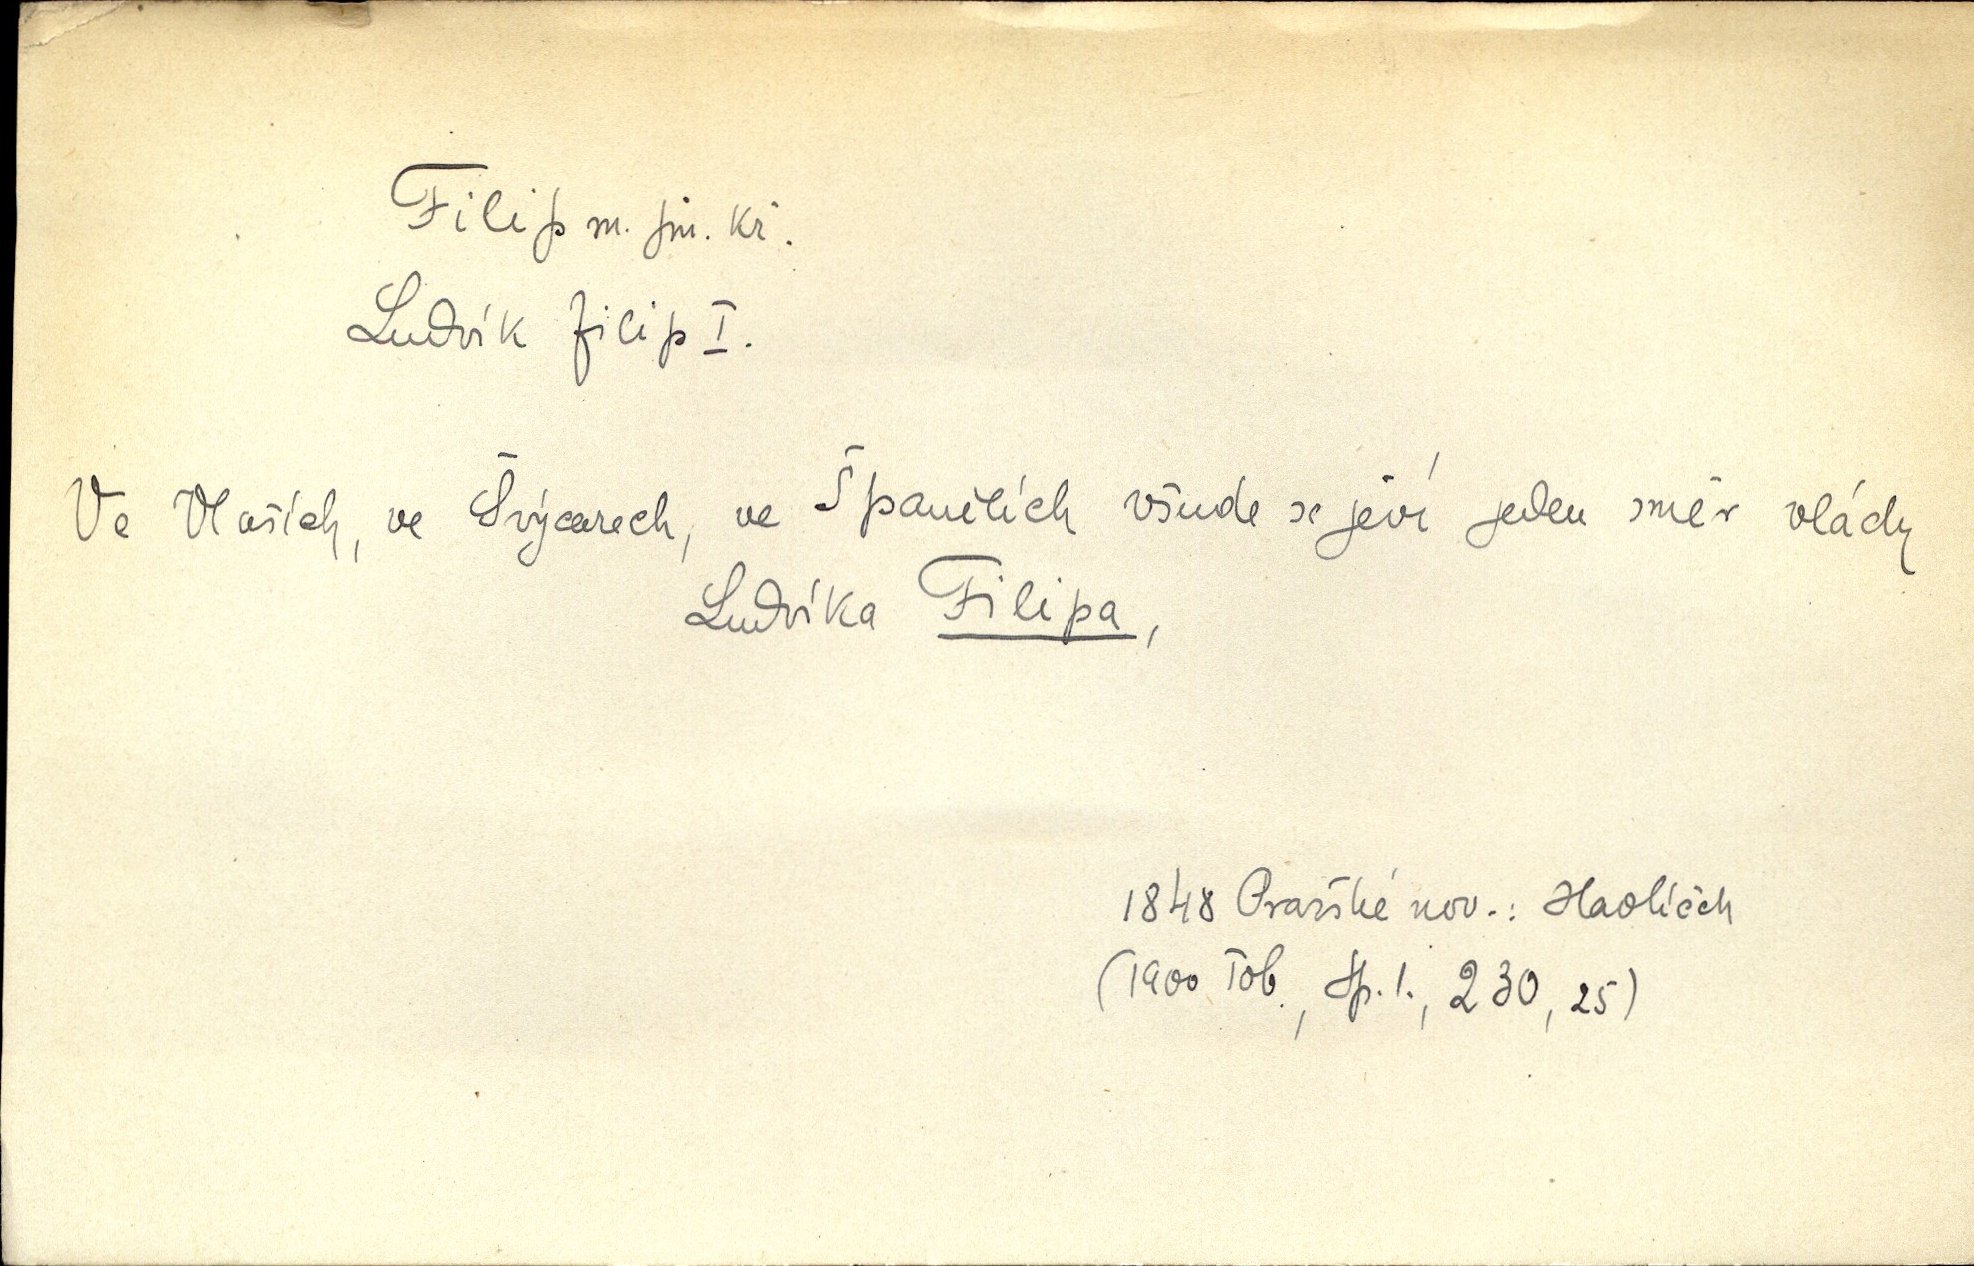 Filip m. jm. kř.
Ludvík Filip I.
Ve Vlaších, ve Švýcarech, ve Španělích všude se jeví jeden směr vlády
Ludvíka Filipa,
1848 Pražské nov.: Havlíček
(1900 Tob., Sp. 1., 230, 25)